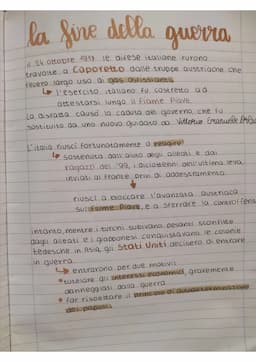 la fine della guerra
il 24 ottobre 1917 le difese italiane furono
travolte a Caporetto dalle truppe austriache che
fecero largo uso di gas asfissianti
↳ l'esercito italiano fu costretto ad
attestarsi lungo il fiume Piave
La disfatta causò la caduta del governo che fu
sostituito da uno nuovo guidato da Vittorio Emanuele
L'Italia riuscì fortunatamente a reagire
↳ sostenuta dall'aiuto degli alleati e dai
ragazzi del '99, i diciottenni dell'ultima leva
inviati al fronte privi di addestramento
riuscì a bloccare l'avanzata austriaca
sul fiume Piave, e a sferrare la controffens
intanto, mentre i turchi subivano pesanti sconfitte
dagli alleati e i giapponesi conquistavano le colonie
tedesche in Asia, gli Stati Uniti decisero di entrare
in guerra
↳ entrarono per due motivi:
• tutelare gli interessi economici, gravemente
danneggiati dalla guerra
• far rispettare il principio di autodeterminazione
dei popoli